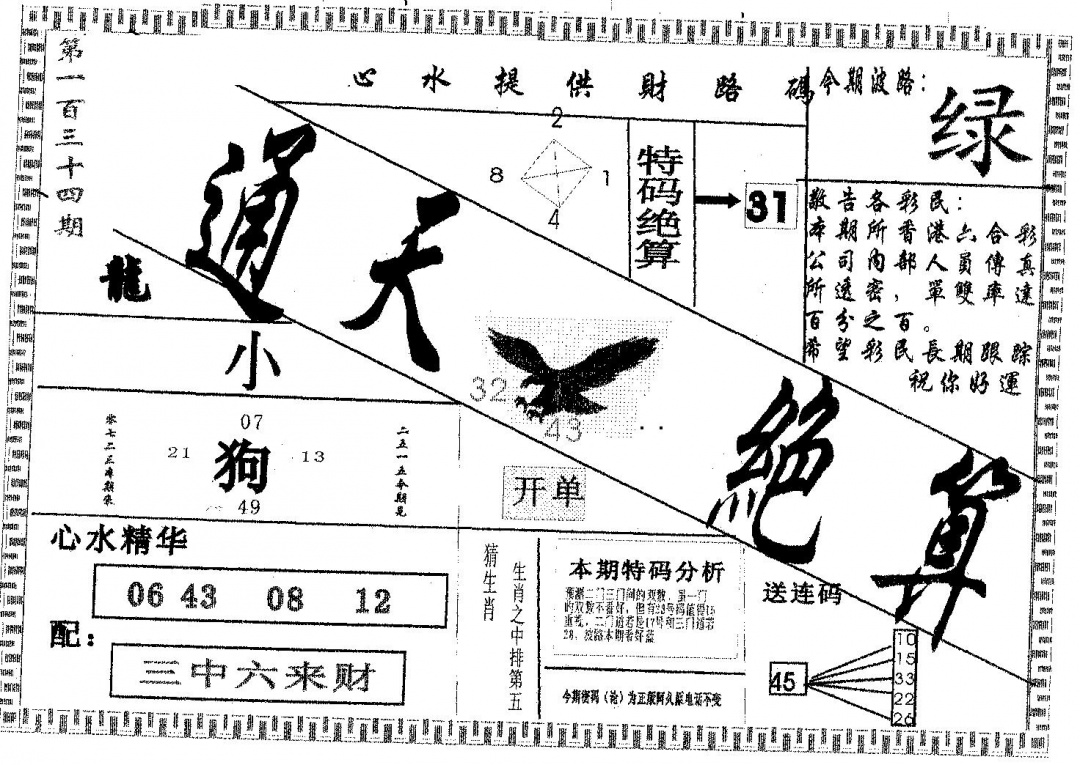 第一百三十四期
心水提供財路碼
今期波路：
绿
通天絶算
2
8
1
4
特码绝算
31
敬告各彩民：
本期所香港六合彩
公司内部人員傳真
所透密，單雙率達
百分之百。
希望彩民長期跟踪
祝你好運
龍
小
32
43
开单
07
21
狗
13
49
二五一五今期見
心水精华
06 43 08 12
配：
三中六来财
猜生肖
生肖之中排第五
本期特码分析
送连码
45
10
15
33
22
26